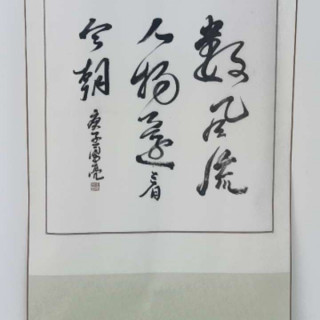 数风流
人物还看
今朝
庚子